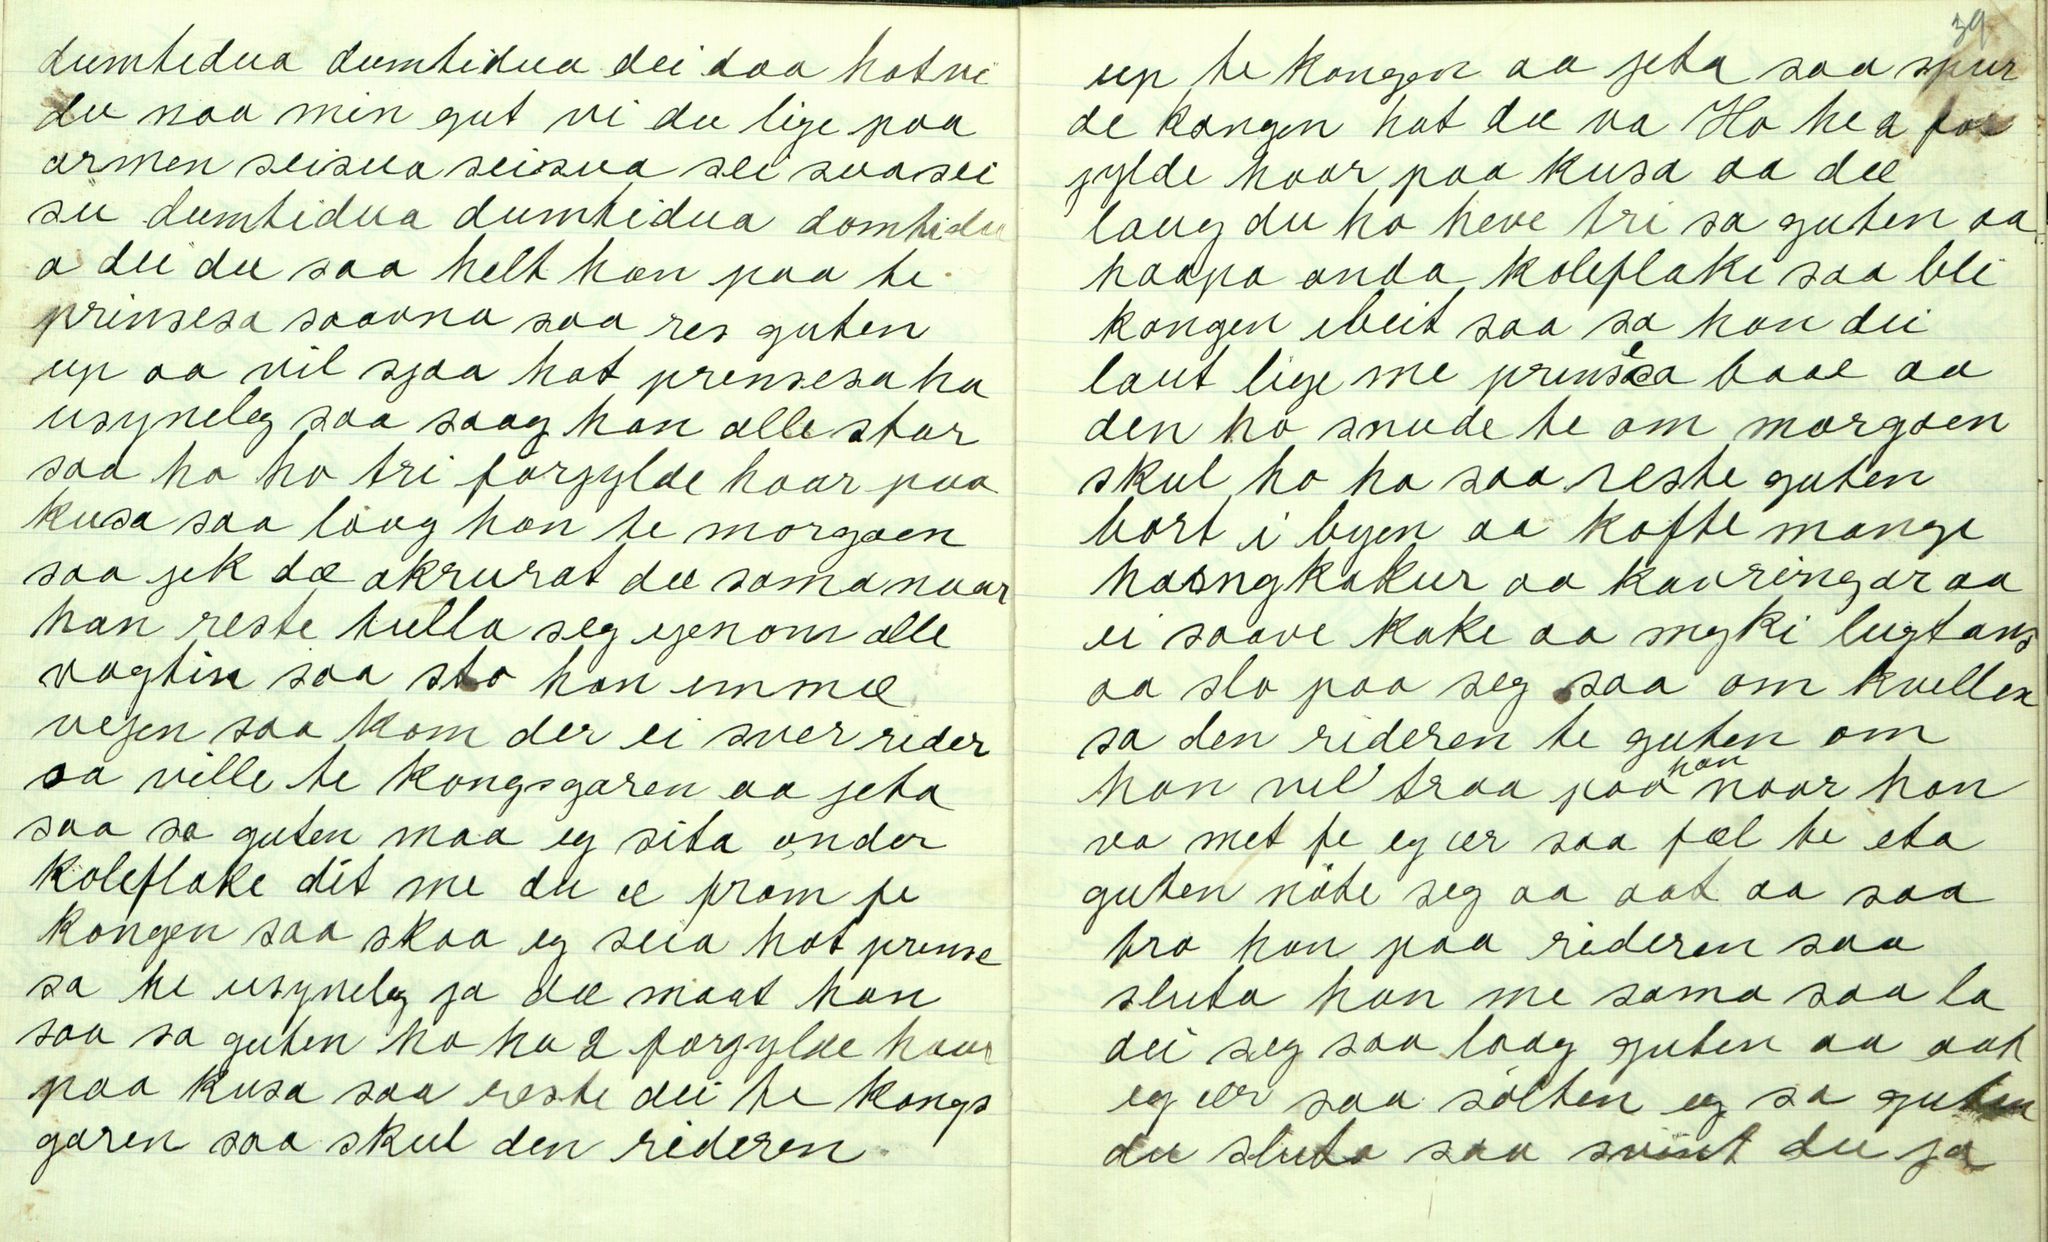 dumtedua dumtidua dei daa hotvi
du naa min gut vi du lige paa
armen seisua seisua sei suasei
su dumtidua dumtidua domtidu
a dei du saa helt han paa te
prinsesa saavna saa res guten
up aa vil sjaa hot prensesa ha
usyneleg saa saag han alle star
saa ha ho tri forjylde haar paa
kusa saa laag han te morgaen
saa jek dæ akrurat dæ sama naar
han reste tulla seg ejenom alle
vagtin saa sto han emmæ
vejen saa kom der ei sver rider
sa ville te kongsgaren aa jeta
saa sa guten maa eg sita onder
koleflake dit me du æ fram fe
kongen saa skaa eg seia hot prinse
sa he usyneleg ja dæ maat han
saa sa guten ho ha 2 forjylde haar
paa kusa saa reste dei te kongs
garen saa skul den rideren
39
up te kongen aa jeta saa spur
de kongen hot dæ va Ho he 2 for
jylde haar paa kusa aa dæ
laug du ho heve tri sa guten aa
haapa onda koleflaki saa blei
kongen ibeit saa sa han dei
laut lige me prinsesa baae aa
den ho snude te om morgaen
skul ho ha saa reste guten
bort i byen aa kofte mange
hasngkakur aa kavringar aa
ei saave kake aa myki lugtans
aa slo paa seg saa om kvellen
sa den rideren te guten om
han vil traa paa han naar han
va met fe eg ær saa fæl te eta
guten nöte seg aa aat aa saa
tro han paa rideren saa
sluta han me sama saa la
dei seg saa laag guten aa aat
eg ær saa sölten eg sa guten
du sluta saa svint du ja